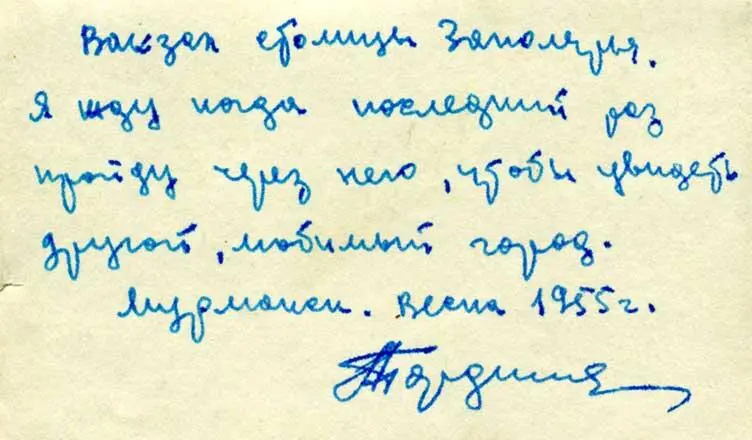 Вокзал столицы Заполярья.
Я жду когда последний раз
пройду через него, чтобы увидеть
другой, любимый город.
Мурманск. Весна 1955г.